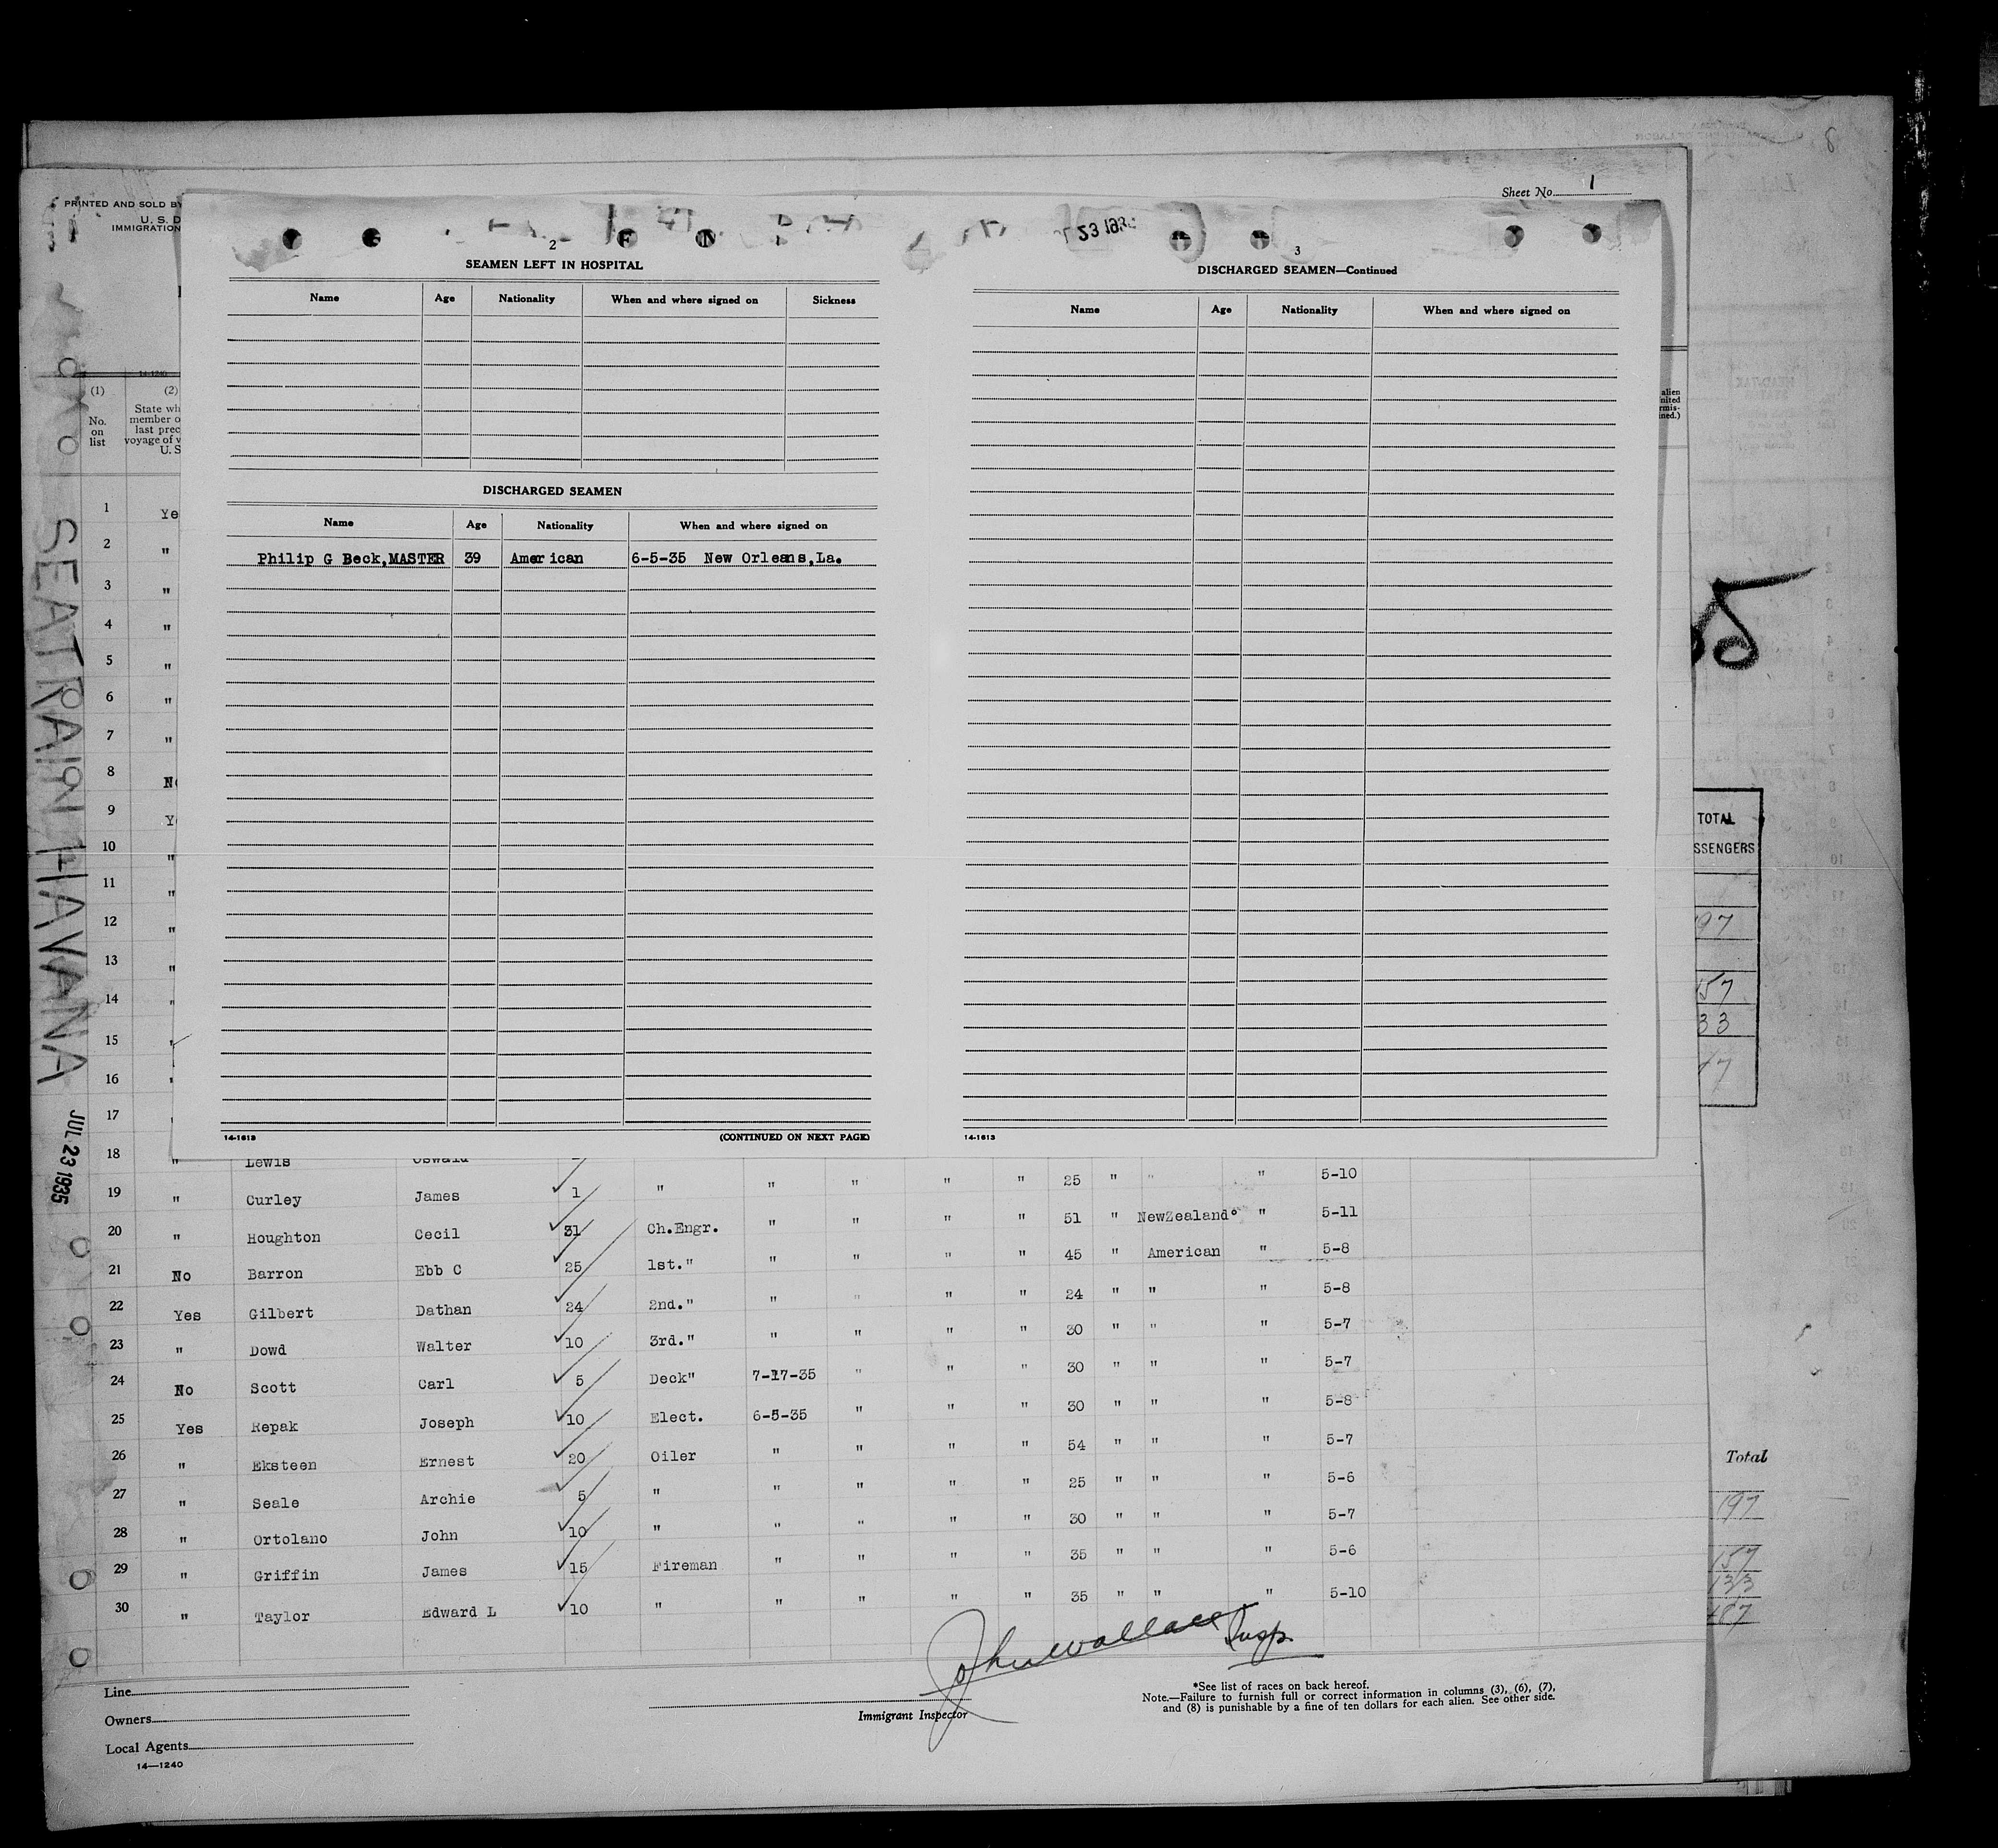 Sheet No. 1
PRINTED AND SOLD BY
U. S. D
IMMIGRATION
23 193
2
SEAMEN LEFT IN HOSPITAL
Name Age Nationality When and where signed on Sickness
DISCHARGED SEAMEN
Name Age Nationality When and where signed on
Philip G Beck,MASTER 39 American 6-5-35 New Orleans,La.
14-1613 (CONTINUED ON NEXT PAGE)
3
DISCHARGED SEAMEN—Continued
Name Age Nationality When and where signed on
14-1613
14-1240
(1) (2)
No. on list
State wh
member o
last prec
voyage of v
U. S
alien
nited
rmis-
ned.)
SEATRAIN HAVANA
JUL 23 1935
1 Ye
2 "
3 "
4 "
5 "
6 "
7 "
8 No
9 Y
10 "
11 "
12 "
13 "
14 "
15 "
16 "
17
18 " Lewis Oswald
19 " Curley James 1 " " " " " 25 " " " 5-10
20 " Houghton Cecil 31 Ch.Engr. " " " " 51 " NewZealand " 5-11
21 No Barron Ebb C 25 1st." " " " " 45 " American " 5-8
22 Yes Gilbert Dathan 24 2nd." " " " " 24 " " " 5-8
23 " Dowd Walter 10 3rd." " " " " 30 " " " 5-7
24 No Scott Carl 5 Deck" 7-17-35 " " " 30 " " " 5-7
25 Yes Repak Joseph 10 Elect. 6-5-35 " " " 30 " " " 5-8
26 " Eksteen Ernest 20 Oiler " " " " 54 " " " 5-7
27 " Seale Archie 5 " " " " " 25 " " " 5-6
28 " Ortolano John 10 " " " " " 30 " " " 5-7
29 " Griffin James 15 Fireman " " " " 35 " " " 5-6
30 " Taylor Edward L 10 " " " " " 35 " " " 5-10
John Wallace Insp.
Immigrant Inspector
Line
Owners
Local Agents
14—1240
*See list of races on back hereof.
Note.—Failure to furnish full or correct information in columns (3), (6), (7),
and (8) is punishable by a fine of ten dollars for each alien. See other side.
TOTAL
SSENGERS
97
157
33
Total
197
157
133
487